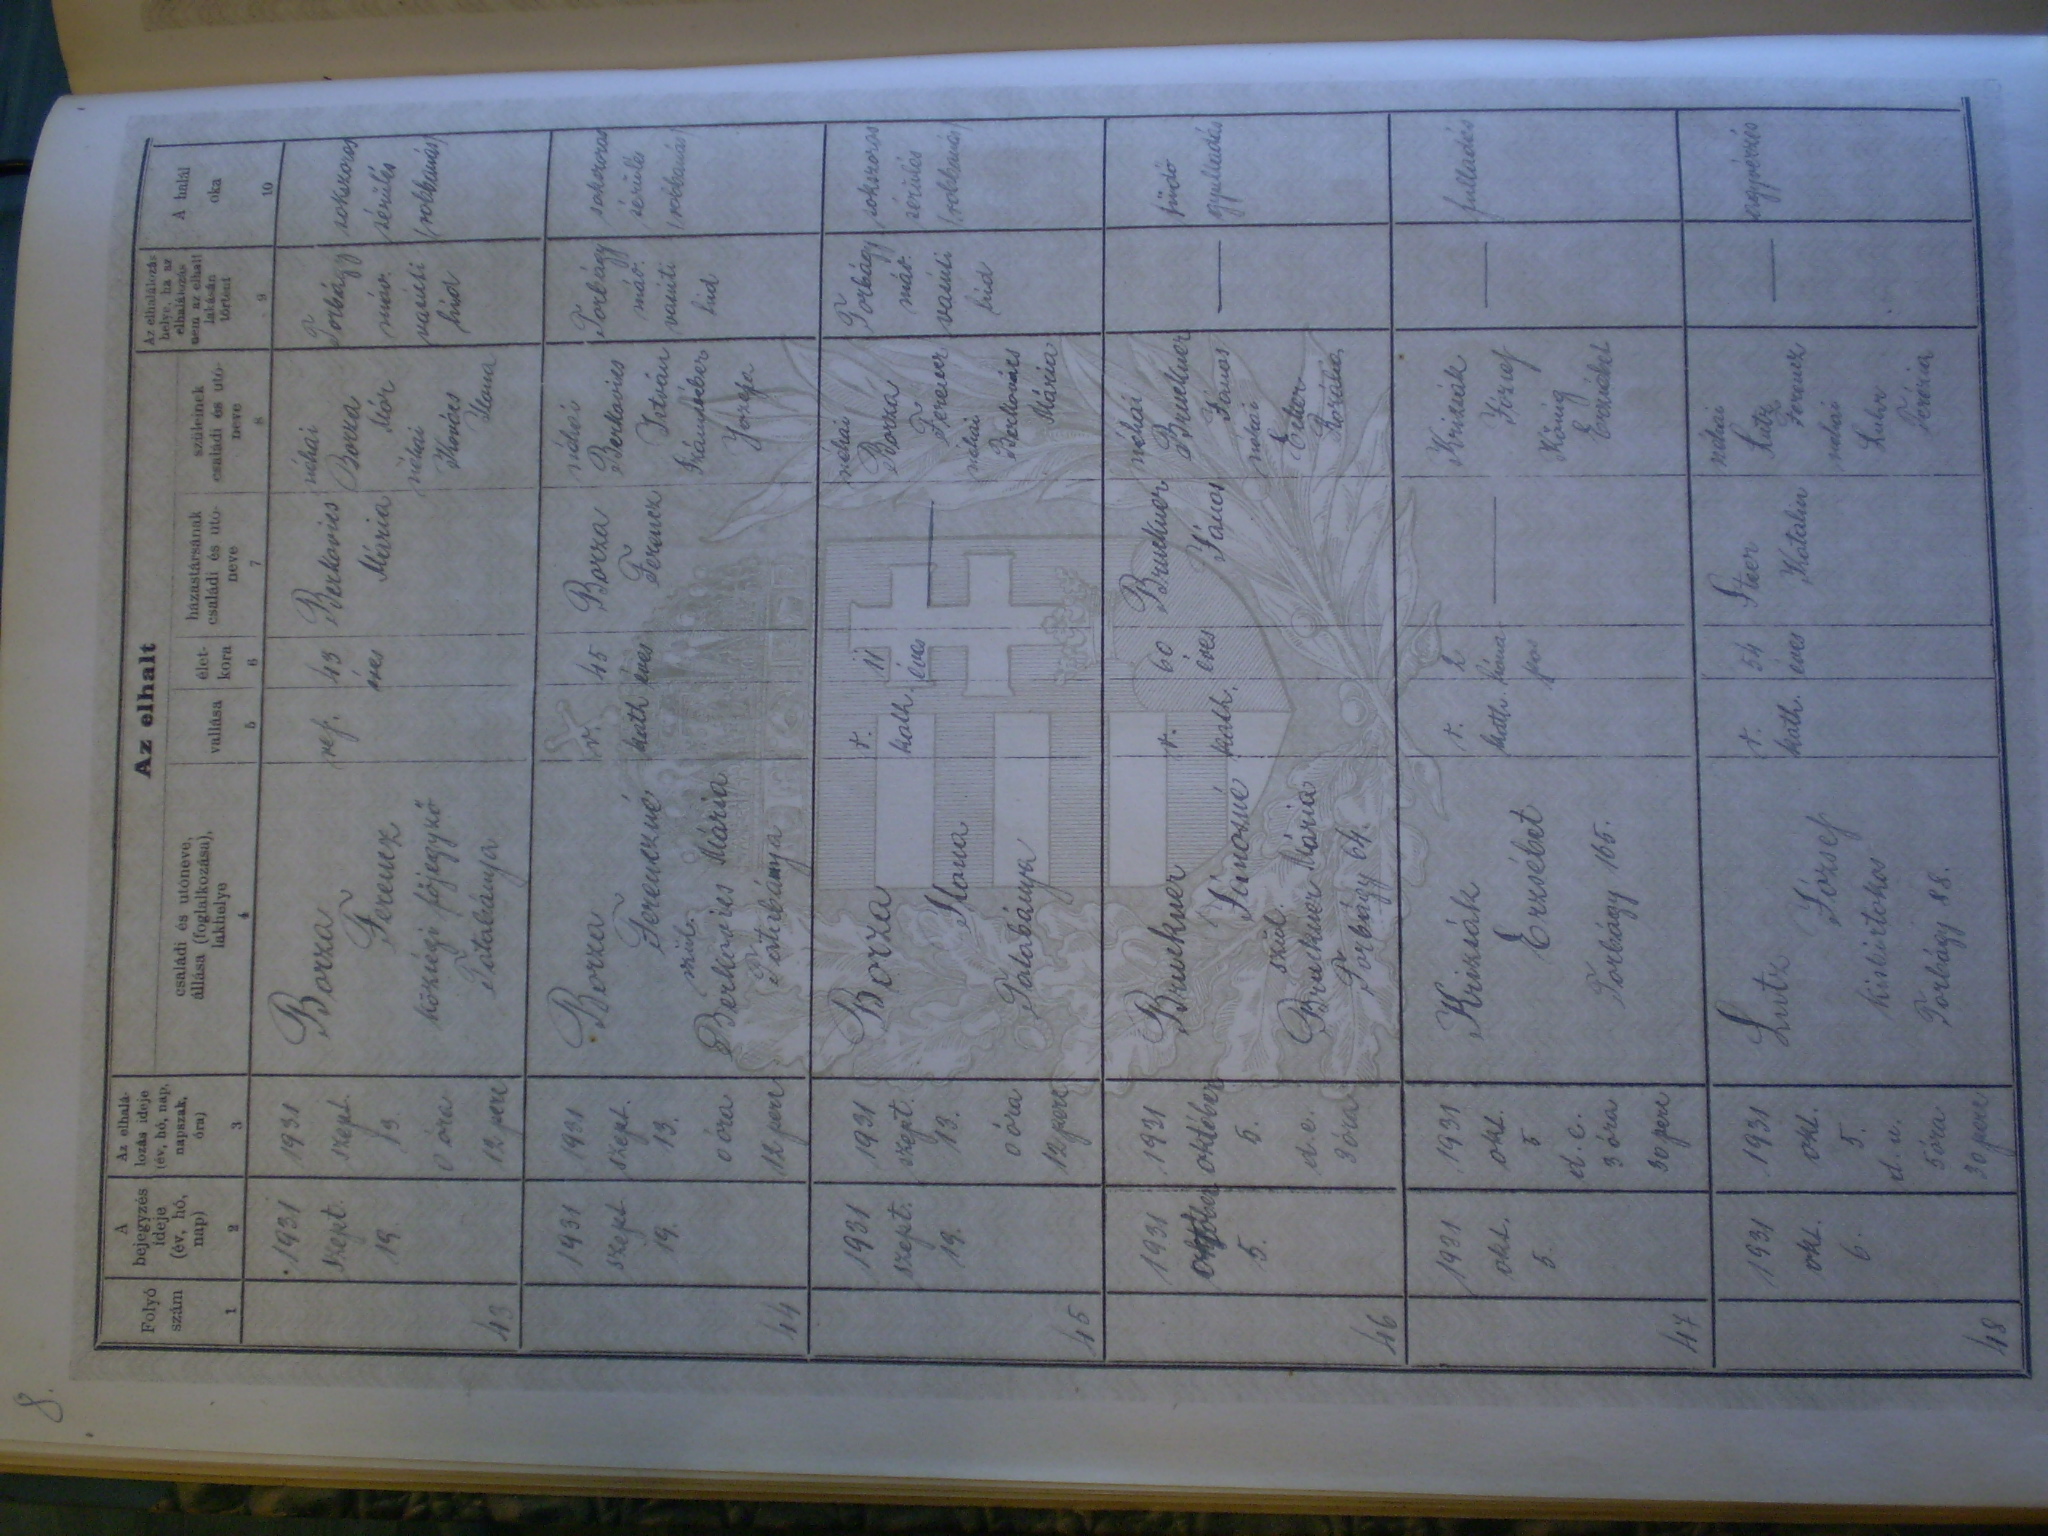 8.
Az elhalt
Folyó
szám
A
bejegyzés
ideje
(év, hó,
nap)
Az elhalá-
lozás ideje
(év, hó, nap,
napszak,
óra)
családi és utóneve,
állása (foglalkozása),
lakhelye
vallása
élet-
kora
házastársának
családi és utó-
neve
szüleinek
családi és utó-
neve
Az elhalálozás
helye, ha az
elhalálozás
nem az elhalt
lakásán
történt
A halál
oka
1
2
3
4
5
6
7
8
9
10
43
1931
szept.
19.
1931
szept.
13
0 óra
12 perc
Borza
Ferencz
községi főjegyző
Tatabánya
ref.
43
éves
Berkovics
Mária
néhai
Borza
Mór
néhai
Kovács
Ilona
Torbágy
máv.
vasúti
híd
sokszoros
sérülés
(robbanás)
44
1931
szept.
19.
1931
szept.
13.
0 óra
12 perc
Borza
Ferenczné
szül.
Berkovics Mária
Tatabánya
r.
kath
45
éves
Borza
Ferencz
néhai
Berkovics
István
Jozefa
Torbágy
máv.
vasúti
híd
sokszoros
sérülés
(robbanás)
45
1931
szept.
19.
1931
szept.
13.
0 óra
12 perc
Borza
Ilona
Tatabánya
r.
kath.
11
éves
néhai
Borza
Ferencz
néhai
Berkovics
Mária
Torbágy
máv.
vasúti
híd
sokszoros
sérülés
(robbanás)
46
1931
október
5.
1931
október
5.
d. e.
3 óra
Bruckner
Jánosné
szül.
Bruckner Mária
Torbágy 64.
r.
kath.
60
éves
Bruckner
János
néhai
Bruckner
János
néhai
Ecker
Rozália
tüdő
gyulladás
47
1931
okt.
5.
1931
okt.
5
d. e.
3 óra
30 perc
Krizsák
Erzsébet
Torbágy 165.
r.
kath.
2
hóna-
pos
Krizsák
József
König
Erzsébet
fulladás
48
1931
okt.
6.
1931
okt.
5.
d. u.
5 óra
30 perc
Lutz
József
kisbirtokos
Torbágy 88.
r.
kath.
54
éves
Steer
Katalin
néhai
Lutz
Ferencz
néhai
Terézia
agyvérzés